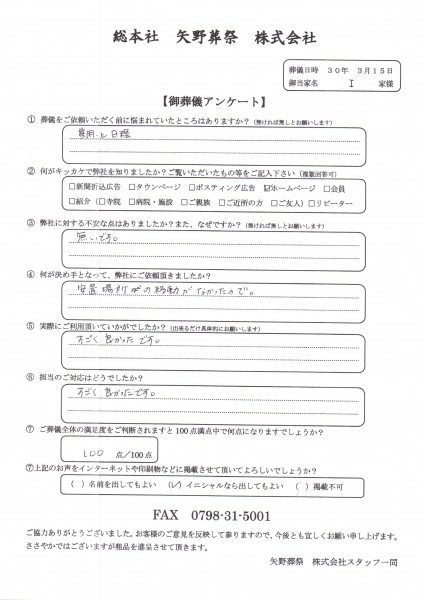 総本社 矢野葬祭 株式会社
葬儀日時 30年 3月15日
御当家名 I 家様
【御葬儀アンケート】
① 葬儀をご依頼いただく前に悩まれていたところはありますか？（無ければ無しとお願いします）
費用と日程
② 何がキッカケで弊社を知りましたか？ご覧いただいたもの等をご記入下さい（複数回答可）
□新聞折込広告 □タウンページ □ポスティング広告 ☑ホームページ □会員
□紹介（□寺院 □病院・施設 □ご親族 □ご近所の方 □ご友人）□リピーター
③ 弊社に対する不安な点はありましたか？また、なぜですか？（無ければ無しとお願いします）
無いです。
④ 何が決め手となって、弊社にご依頼頂きましたか？
安置場所等の移動がなかったので。
⑤ 実際にご利用頂いていかがでしたか？（出来るだけ具体的にお願いします）
すごく良かったです。
⑥ 担当のご対応はどうでしたか？
すごく良かったです。
⑦ ご葬儀全体の満足度をご判断されますと100点満点中で何点になりますでしょうか？
100 点/100点
⑦上記のお声をインターネットや印刷物などに掲載させて頂いてよろしいでしょうか？
（ ）名前を出してもよい （✓）イニシャルなら出してもよい （ ）掲載不可
FAX 0798-31-5001
ご協力ありがとうございました。お客様のご意見を反映して参りますので、今後とも宜しくお願い申し上げます。
ささやかではございますが粗品を進呈させて頂きます。
矢野葬祭 株式会社スタッフ一同